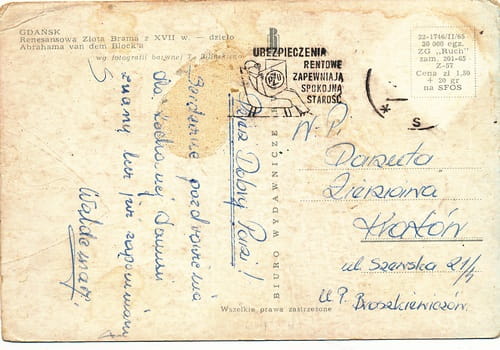 GDAŃSK
Renesansowa Złota Brama z XVII w. — dzieło
Abrahama van dem Block'a
wg fotografii barwnej T.
UBEZPIECZENIA
RENTOWE
ZAPEWNIAJĄ
SPOKOJNĄ
STAROŚĆ
PZU
22-1746/II/65
20 000 egz.
ZG „Ruch"
zam. 201-65
Z-57
Cena zł 1,50
+ 20 gr
na SFOS
S
BIURO WYDAWNICZE
Wszelkie prawa zastrzeżone
Dobry Pani!
Serdeczne pozdrowienia
dla
Waldemar
W.P.
Danuta
Kraków
ul. Szewska 21/4
U.P. Broszkiewiczów